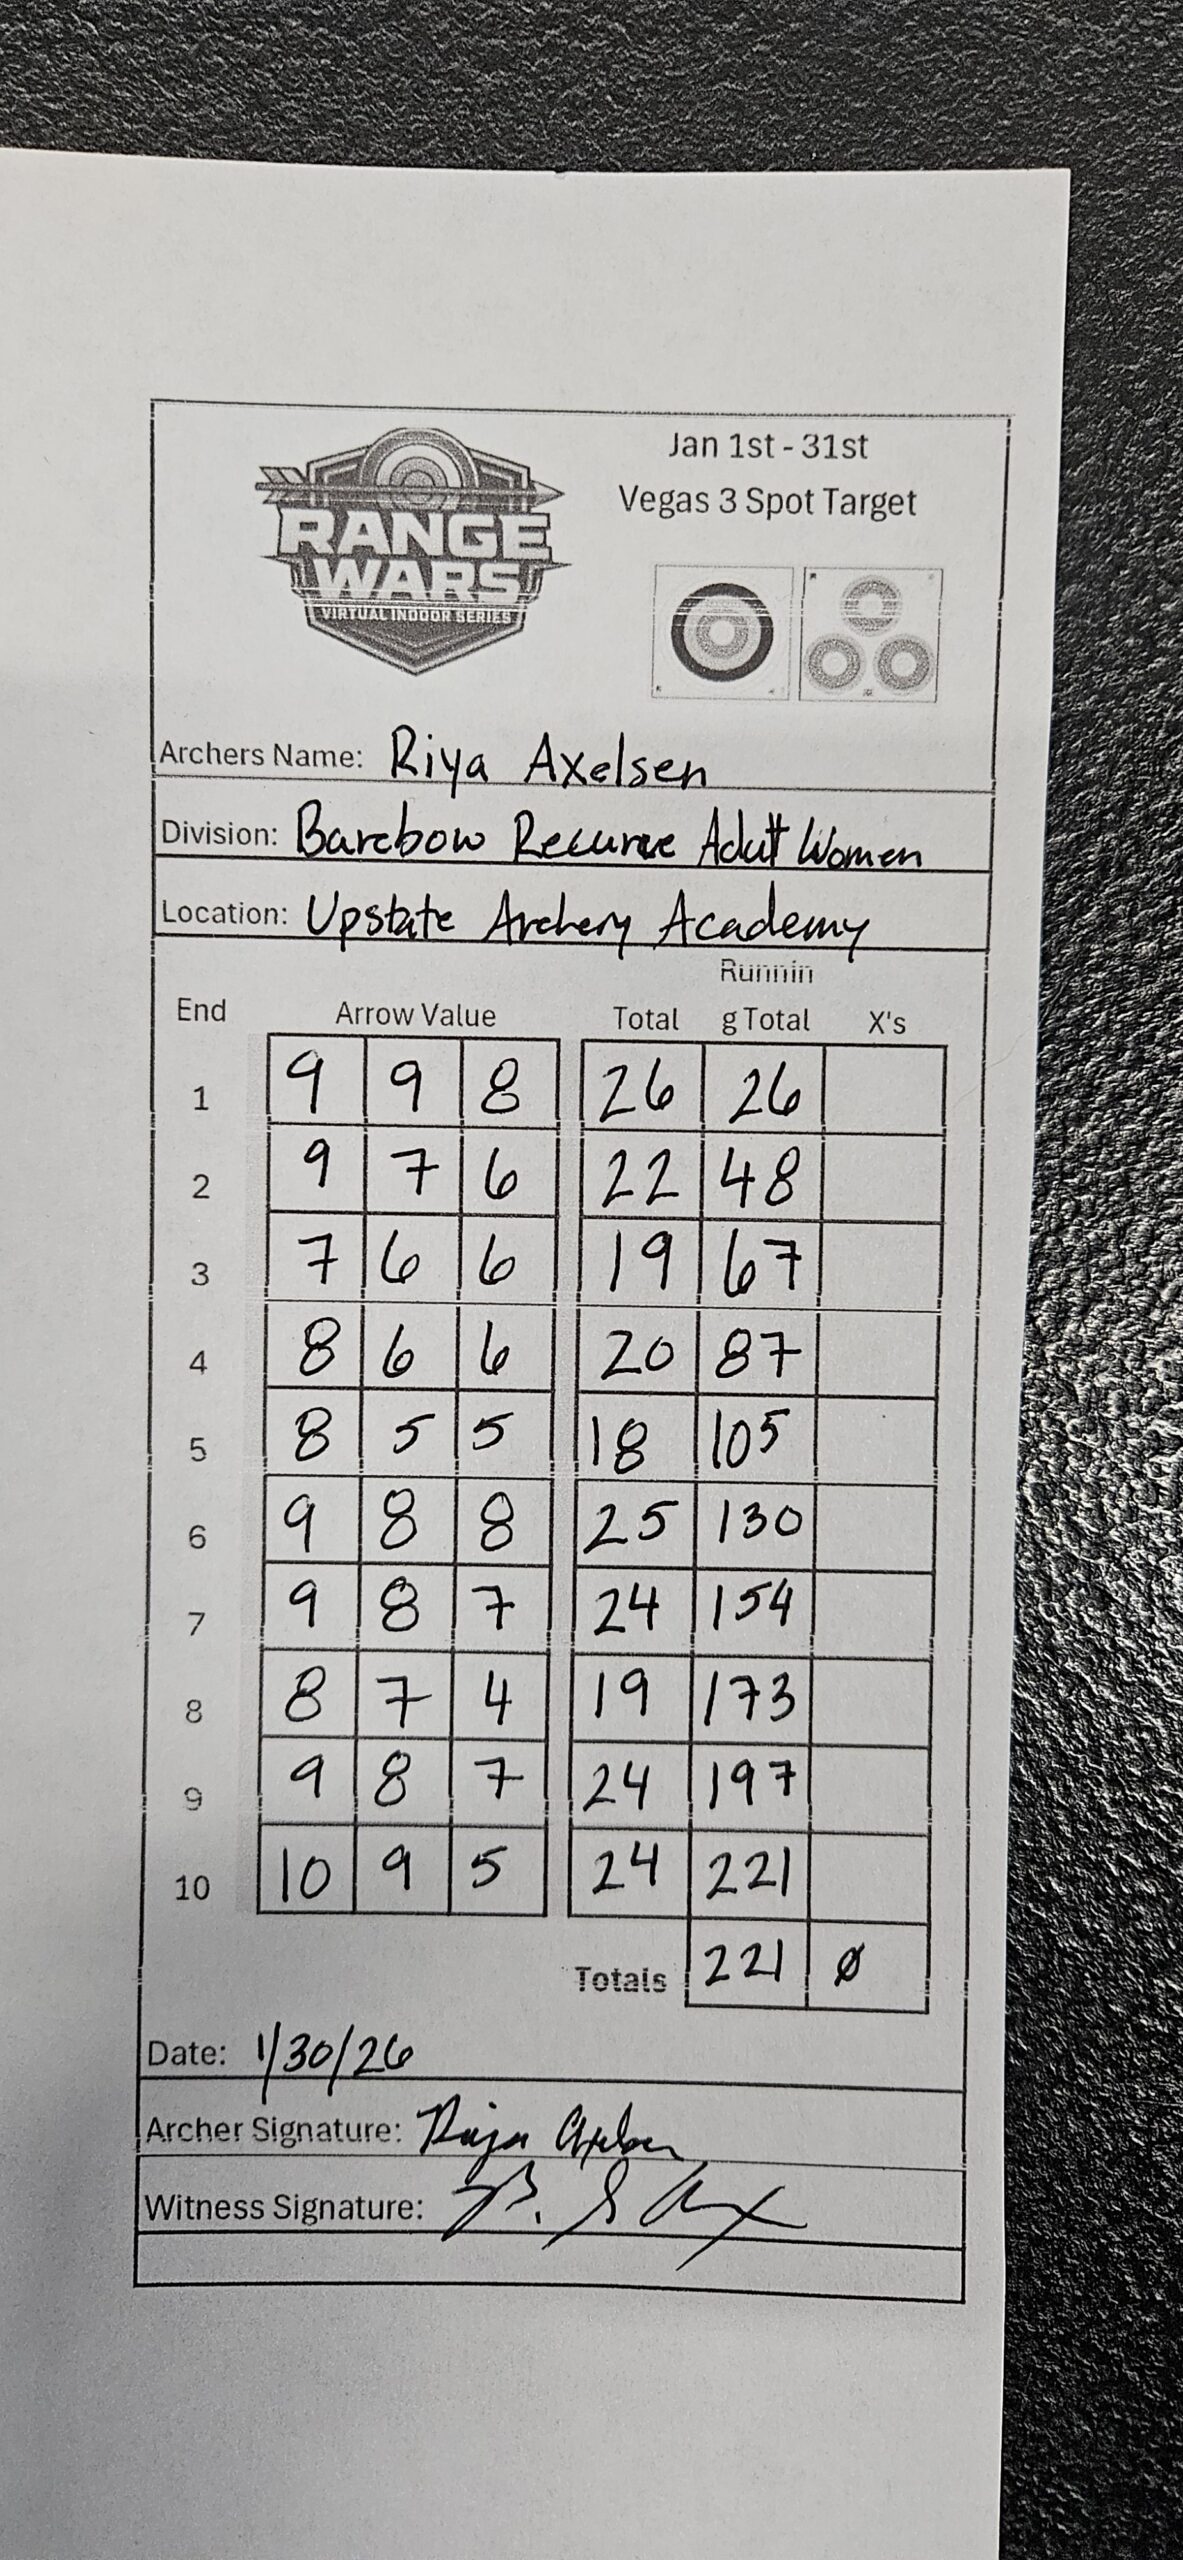 Jan 1st - 31st
Vegas 3 Spot Target
RANGE
WARS
VIRTUAL INDOOR SERIES
Archers Name: Riya Axelsen
Division: Barebow Recurve Adult Women
Location: Upstate Archery Academy
Runnin
End Arrow Value Total g Total X's
1 9 9 8 26 26
2 9 7 6 22 48
3 7 6 6 19 67
4 8 6 6 20 87
5 8 5 5 18 105
6 9 8 8 25 130
7 9 8 7 24 154
8 8 7 4 19 173
9 9 8 7 24 197
10 10 9 5 24 221
Totals 221 Ø
Date: 1/30/26
Archer Signature:
Witness Signature: